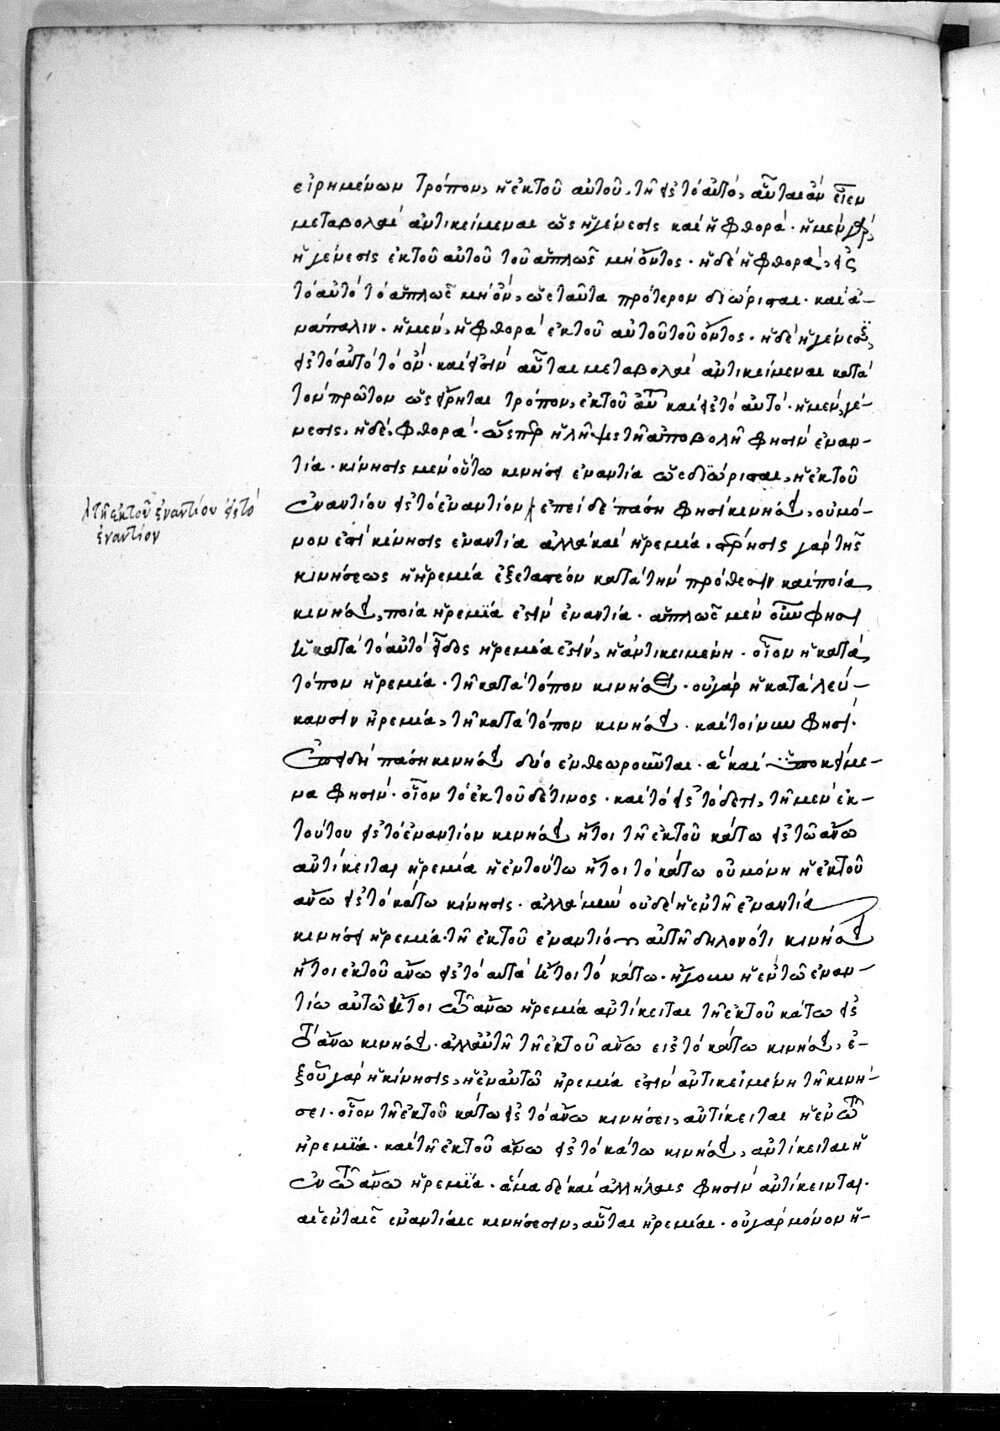 εἰρημένων τρόπον, ἡ ἐκ τοῦ αὐτοῦ, τῇ εἰς τὸ αὐτό, αὗται ἂν εἶεν
μεταβολαὶ ἀντικείμεναι ὡς ἡ γένεσις καὶ ἡ φθορά· ἡ μὲν γὰρ,
ἡ γένεσις ἐκ τοῦ αὐτοῦ τοῦ ἁπλῶς μὴ ὄντος· ἡ δὲ ἡ φθορά, εἰς
τὸ αὐτὸ τὸ ἁπλῶς μὴ ὄν, ὡς ταῦτα πρότερον διώρισται· καὶ ἀ-
νάπαλιν· ἡ μὲν, ἡ φθορὰ ἐκ τοῦ αὐτοῦ τοῦ ὄντος· ἡ δὲ ἡ γένεσις,
εἰς τὸ αὐτὸ τὸ ὄν· καὶ εἰσὶν αὗται μεταβολαὶ ἀντικείμεναι κατὰ
τὸν πρῶτον ὡς εἴρηται τρόπον, ἐκ τοῦ αὐτοῦ καὶ εἰς τὸ αὐτό· ἡ μὲν, γέ-
νεσις, ἡ δὲ, φθορά· ὥσπερ ἡ λῆψις τῇ ἀποβολῇ φησὶν ἐναν-
τία· κίνησις μὲν οὕτω κινήσει ἐναντία ὡς διώρισται, ἡ ἐκ τοῦ
ἐναντίου εἰς τὸ ἐναντίον / ἐπεὶ δὲ πάσῃ φησὶ κινήσει, οὐ μό-
λ τῇ ἐκ τοῦ ἐναντίου εἰς τὸ
ἐναντίον
νον ἐστὶ κίνησις ἐναντία ἀλλὰ καὶ ἠρεμία· στέρησις γὰρ τῆς
κινήσεως ἡ ἠρεμία ἐξεταστέον κατὰ τὴν πρόθεσιν καὶ ποία
κινήσει, ποία ἠρεμία ἐστὶν ἐναντία· ἁπλῶς μὲν οὖν φησὶ
ἡ κατὰ τὸ αὐτὸ εἶδος ἠρεμία ἐστὶν, ἡ ἀντικειμένη· οἷον ἡ κατὰ
τόπον ἠρεμία· τῇ κατὰ τόπον κινήσει· οὐ γὰρ ἡ κατὰ λεύ-
κανσιν ἠρεμία, τῇ κατὰ τόπον κινήσει· καὶ τοίνυν φησί·
ἐπειδὴ πάσῃ κινήσει δύο ἐνθεωροῦνται· ἃ καὶ ὑποκείμε-
να φησίν· οἷον τὸ ἐκ τοῦδέ τινος· καὶ τὸ εἰς τόδε τι, τῇ μὲν ἐκ
τούτου εἰς τὸ ἐναντίον κινήσει ἤτοι τῇ ἐκ τοῦ κάτω εἰς τὸ ἄνω
ἀντίκειται ἠρεμία ἡ ἐν τούτω ἤτοι τὸ κάτω οὐ μόνη ἡ ἐκ τοῦ
ἄνω εἰς τὸ κάτω κίνησις· ἀλλὰ μὴν οὐδὲ ἡ ἐν τῇ ἐναντία
κινήσει ἠρεμία· τῇ ἐκ τοῦ ἐναντίου αὐτῇ δηλονότι κινήσει
ἤτοι ἐκ τοῦ ἄνω εἰς τὸ αὐτὰ ἤτοι τὸ κάτω· ἤγουν ἡ ἐν τῶ ἐναν-
τίω αὐτῶ ἤτοι τῶ ἄνω ἠρεμία ἀντίκειται τῇ ἐκ τοῦ κάτω εἰς
τὸ ἄνω κινήσει· ἀλλ' αὐτῇ τῇ ἐκ τοῦ ἄνω εἰς τὸ κάτω κινήσει, ἐ-
ξ οὗ γὰρ ἡ κίνησις, ἡ ἐν αὐτῶ ἠρεμία ἐστὶν ἀντικειμένη τῇ κινή-
σει· οἷον τῇ ἐκ τοῦ κάτω εἰς τὸ ἄνω κινήσει, ἀντίκειται ἡ ἐν τῶ
ἠρεμία· καὶ τῇ ἐκ τοῦ ἄνω εἰς τὸ κάτω κινήσει, ἀντίκειται ἡ
ἐν τῶ ἄνω ἠρεμία· ἅμα δὲ καὶ ἀλλήλαις φησὶν ἀντίκεινται·
αἱ ἐν ταῖς ἐναντίαις κινήσεσιν, αὗται ἠρεμίαι· οὐ γὰρ μόνον ἡ-